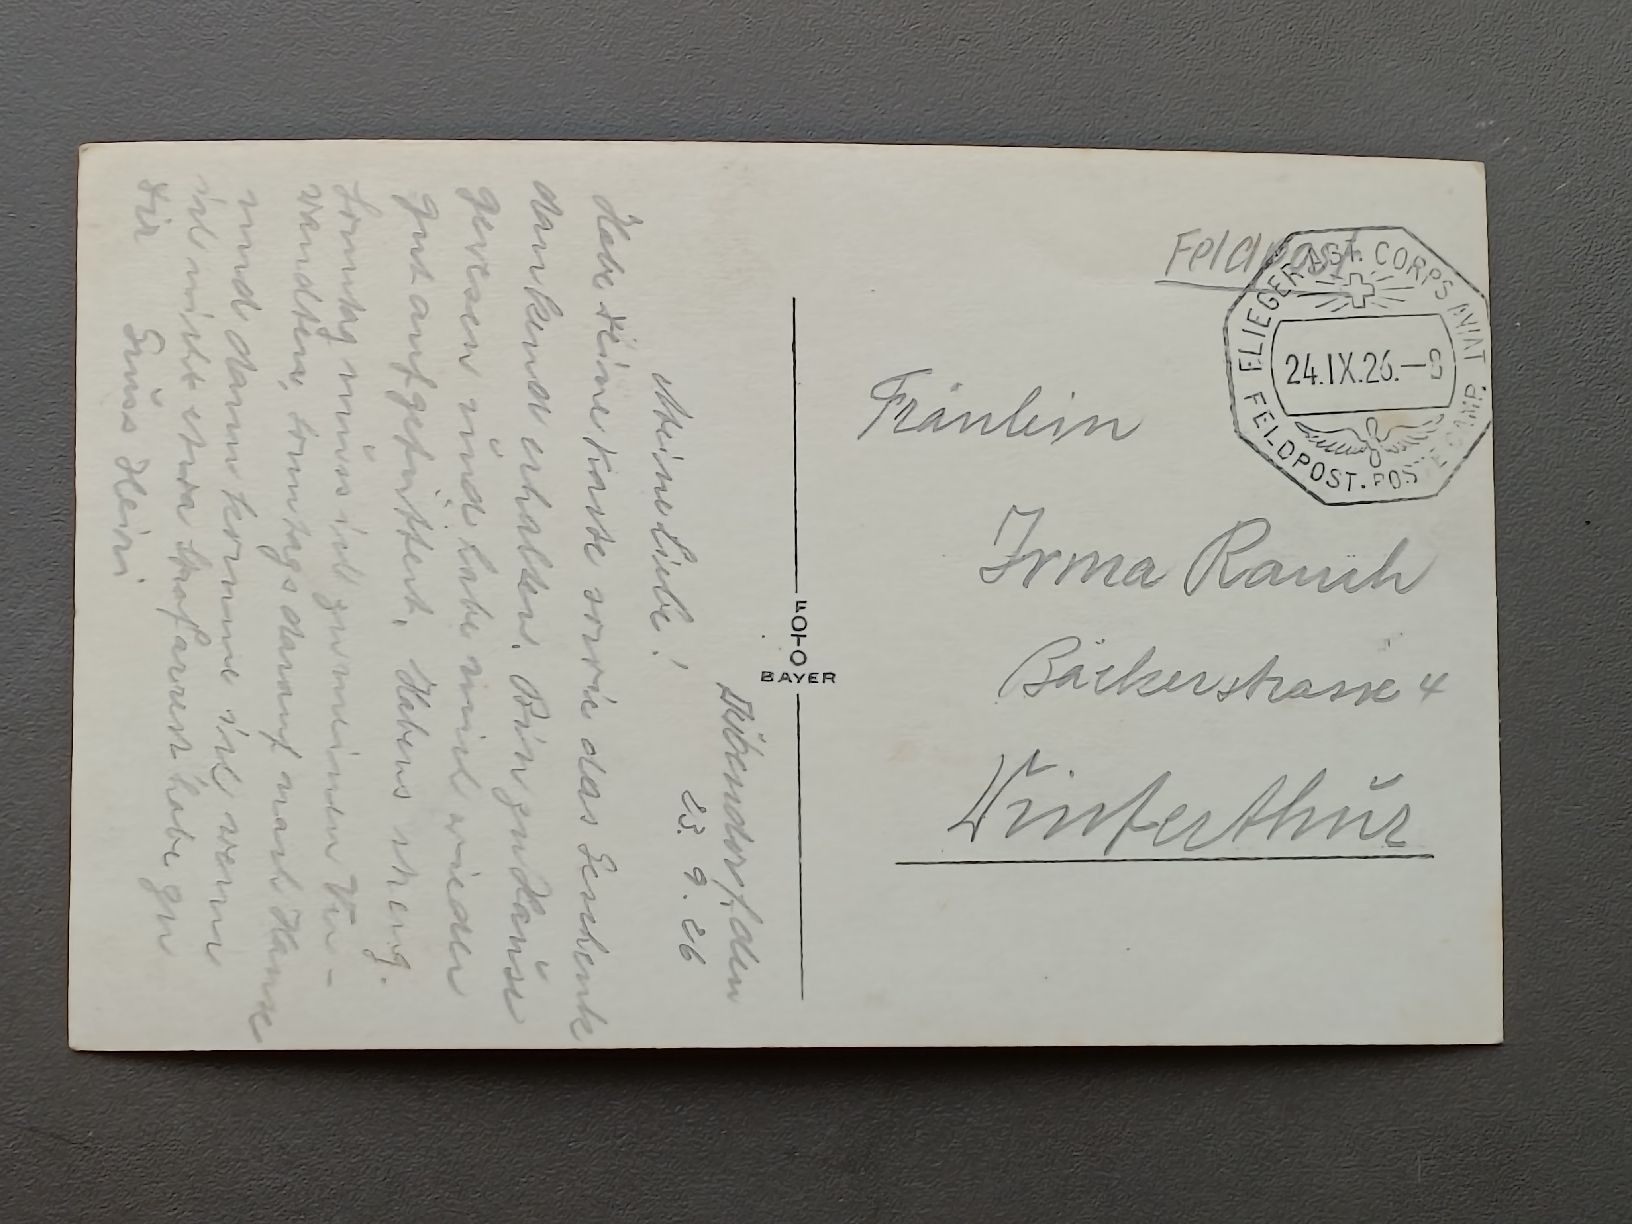 Dübendorf, den
23. 9. 26
Meine Liebe!
Habe Deine Karte sowie das Geschenk
dankend erhalten. Bin zu Hause
gewesen und habe mich wieder
gut aufgefüttert. Haben streng.
Sonntag muss ich zu meinen Ver-
wandten, Sonntags darauf nach Hause
und dann komme ich wenn
ich nicht etwa Strafarrest habe zu
Dir
Gruss Heiri
FOTO
BAYER
Feldpost
FLIEGER ABT. CORPS AVIAT.
24.IX.26.—
FELDPOST. POSTE-CAMP.
Fräulein
Irma Rauch
Bäckerstrasse 4
Winterthur